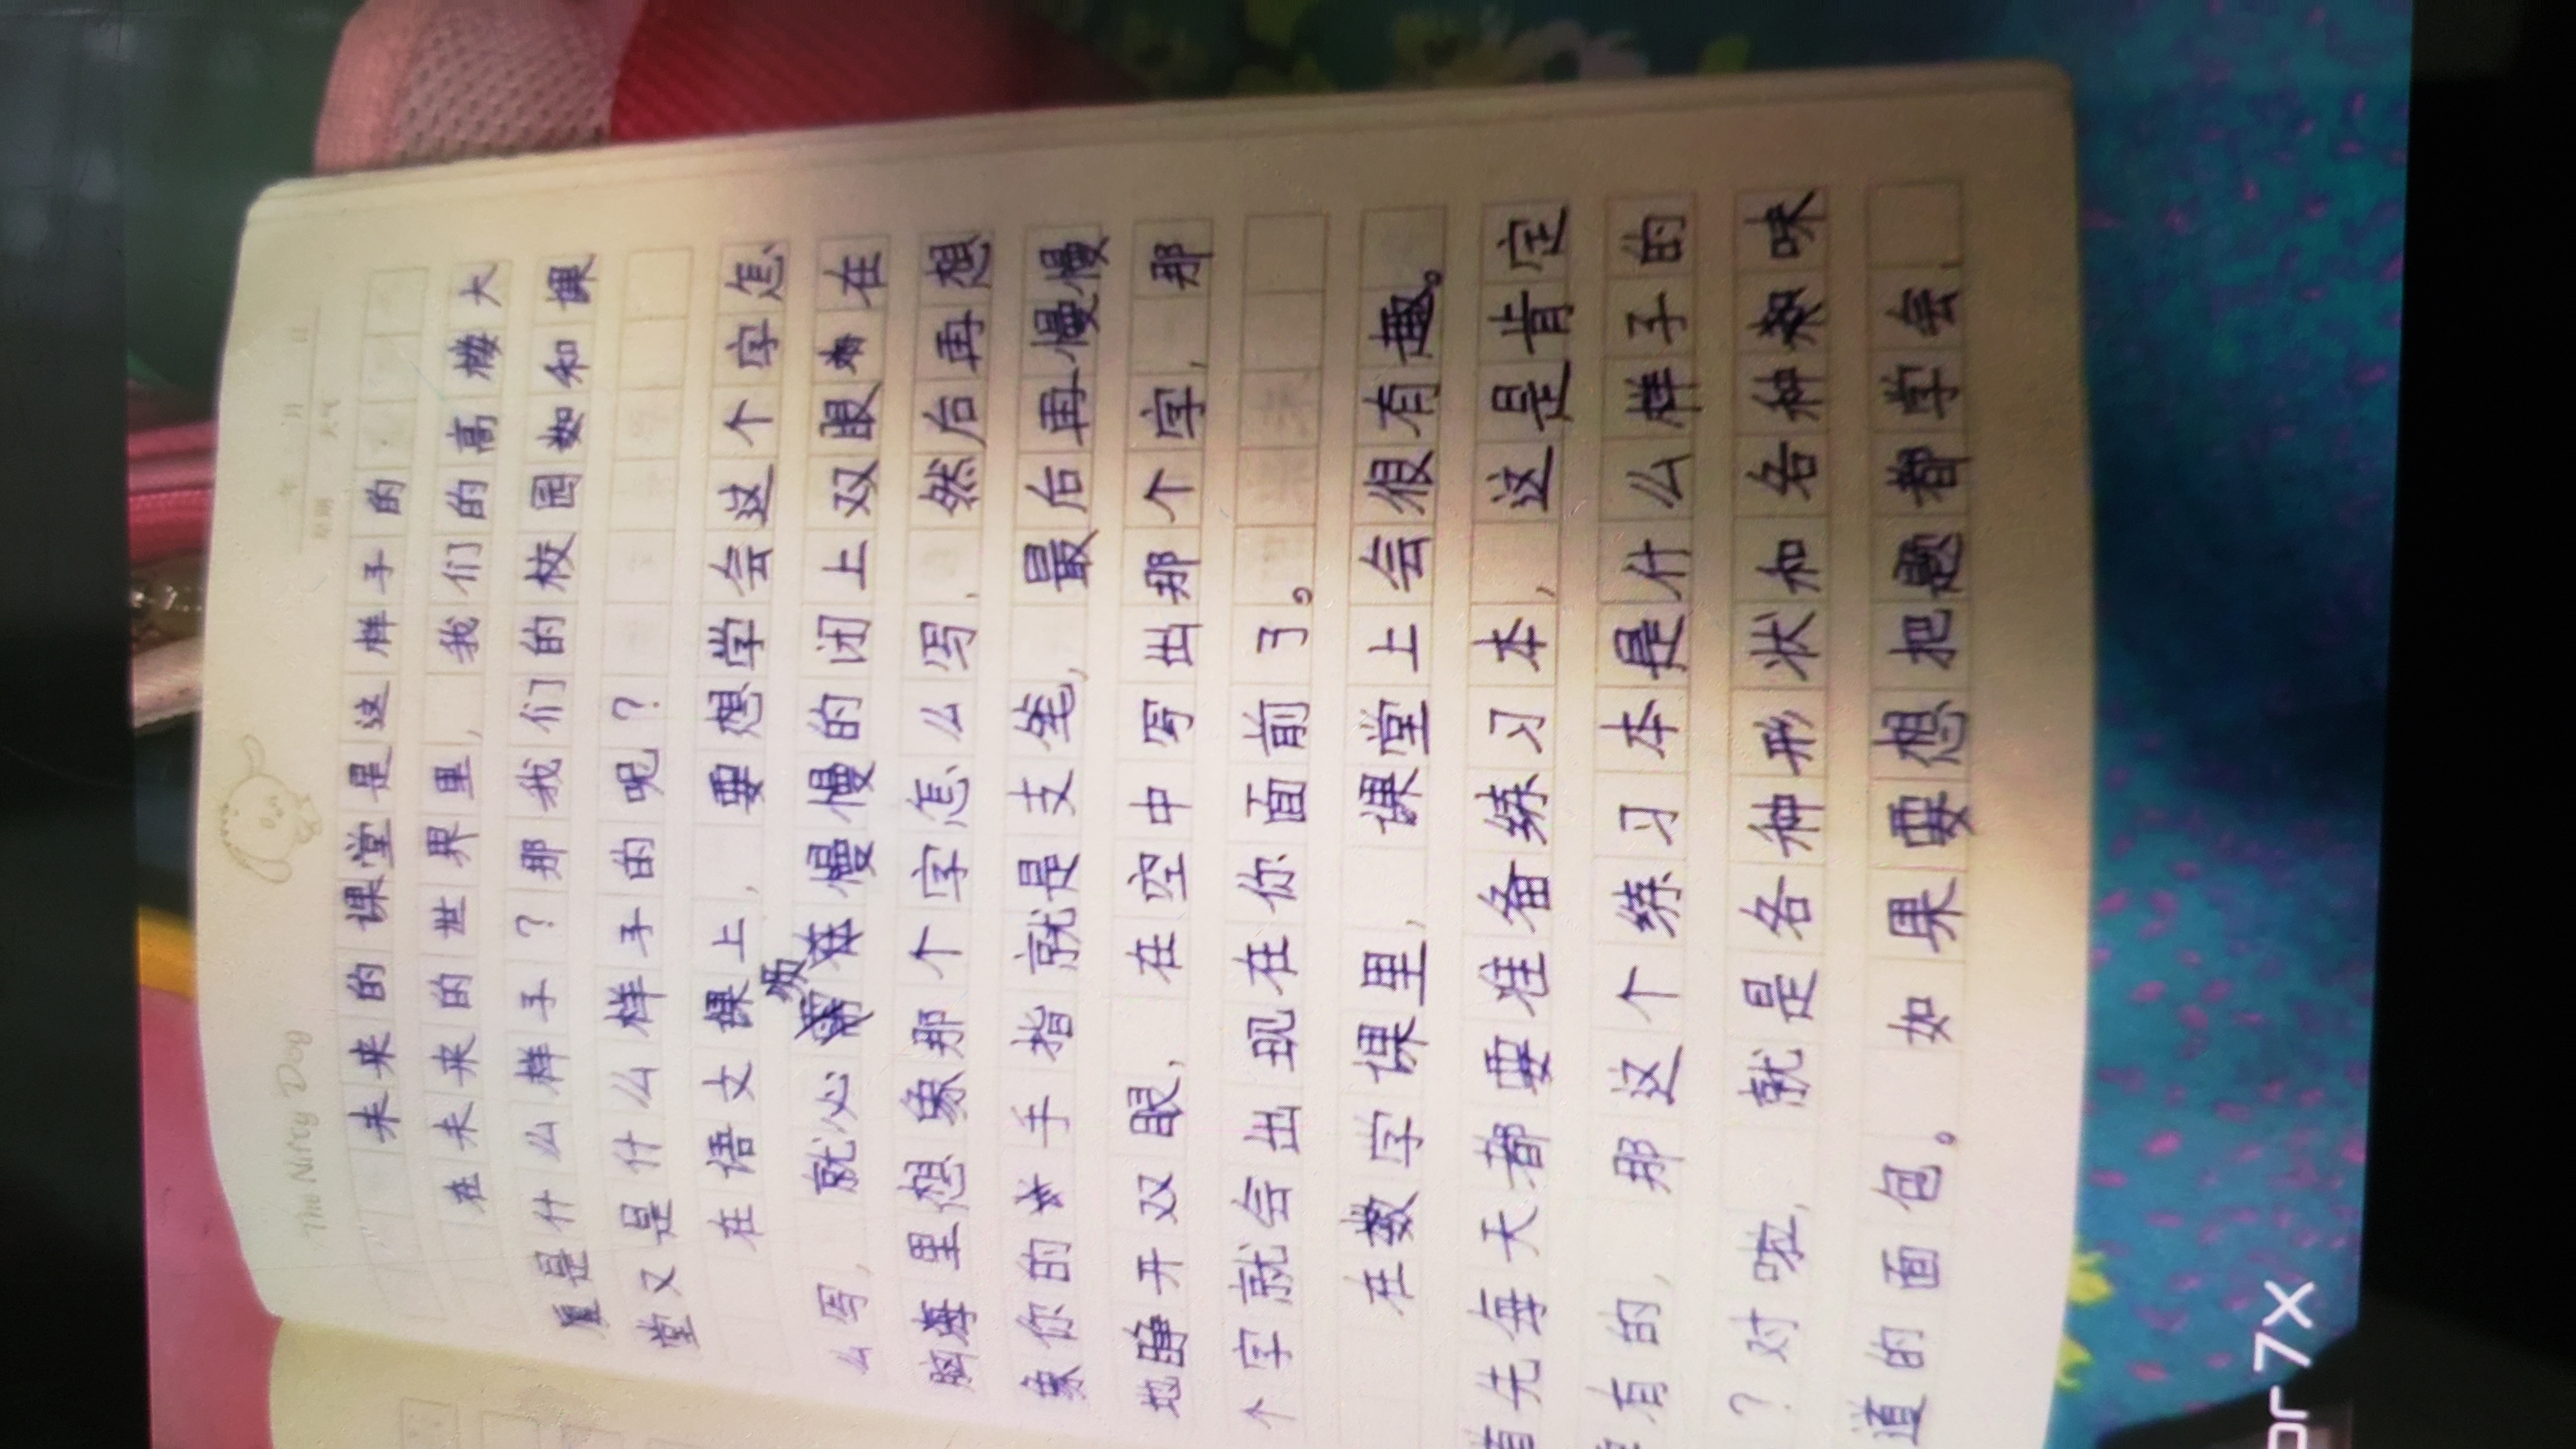 The Nifty Dog
年 月 日
星期 天气
未来的课堂是这样子的
在未来的世界里，我们的高楼大
厦是什么样子？那我们的校园如和课
堂又是什么样子的呢？
在语文课上，要想学会这个字怎
么写，就必须在慢慢的闭上双眼在
脑海里想象那个字怎么写，然后再想
象你的手指就是支笔，最后再慢慢
地睁开双眼，在空中写出那个字，那
个字就会出现在你面前了。
在数学课里，课堂上会很有趣。
首先每天都要准备练习本，这是肯定
有的，那这个练习本是什么样子的
？对啦，就是各种形状和各种味
道的面包。如果要想把题都学会，
or7x